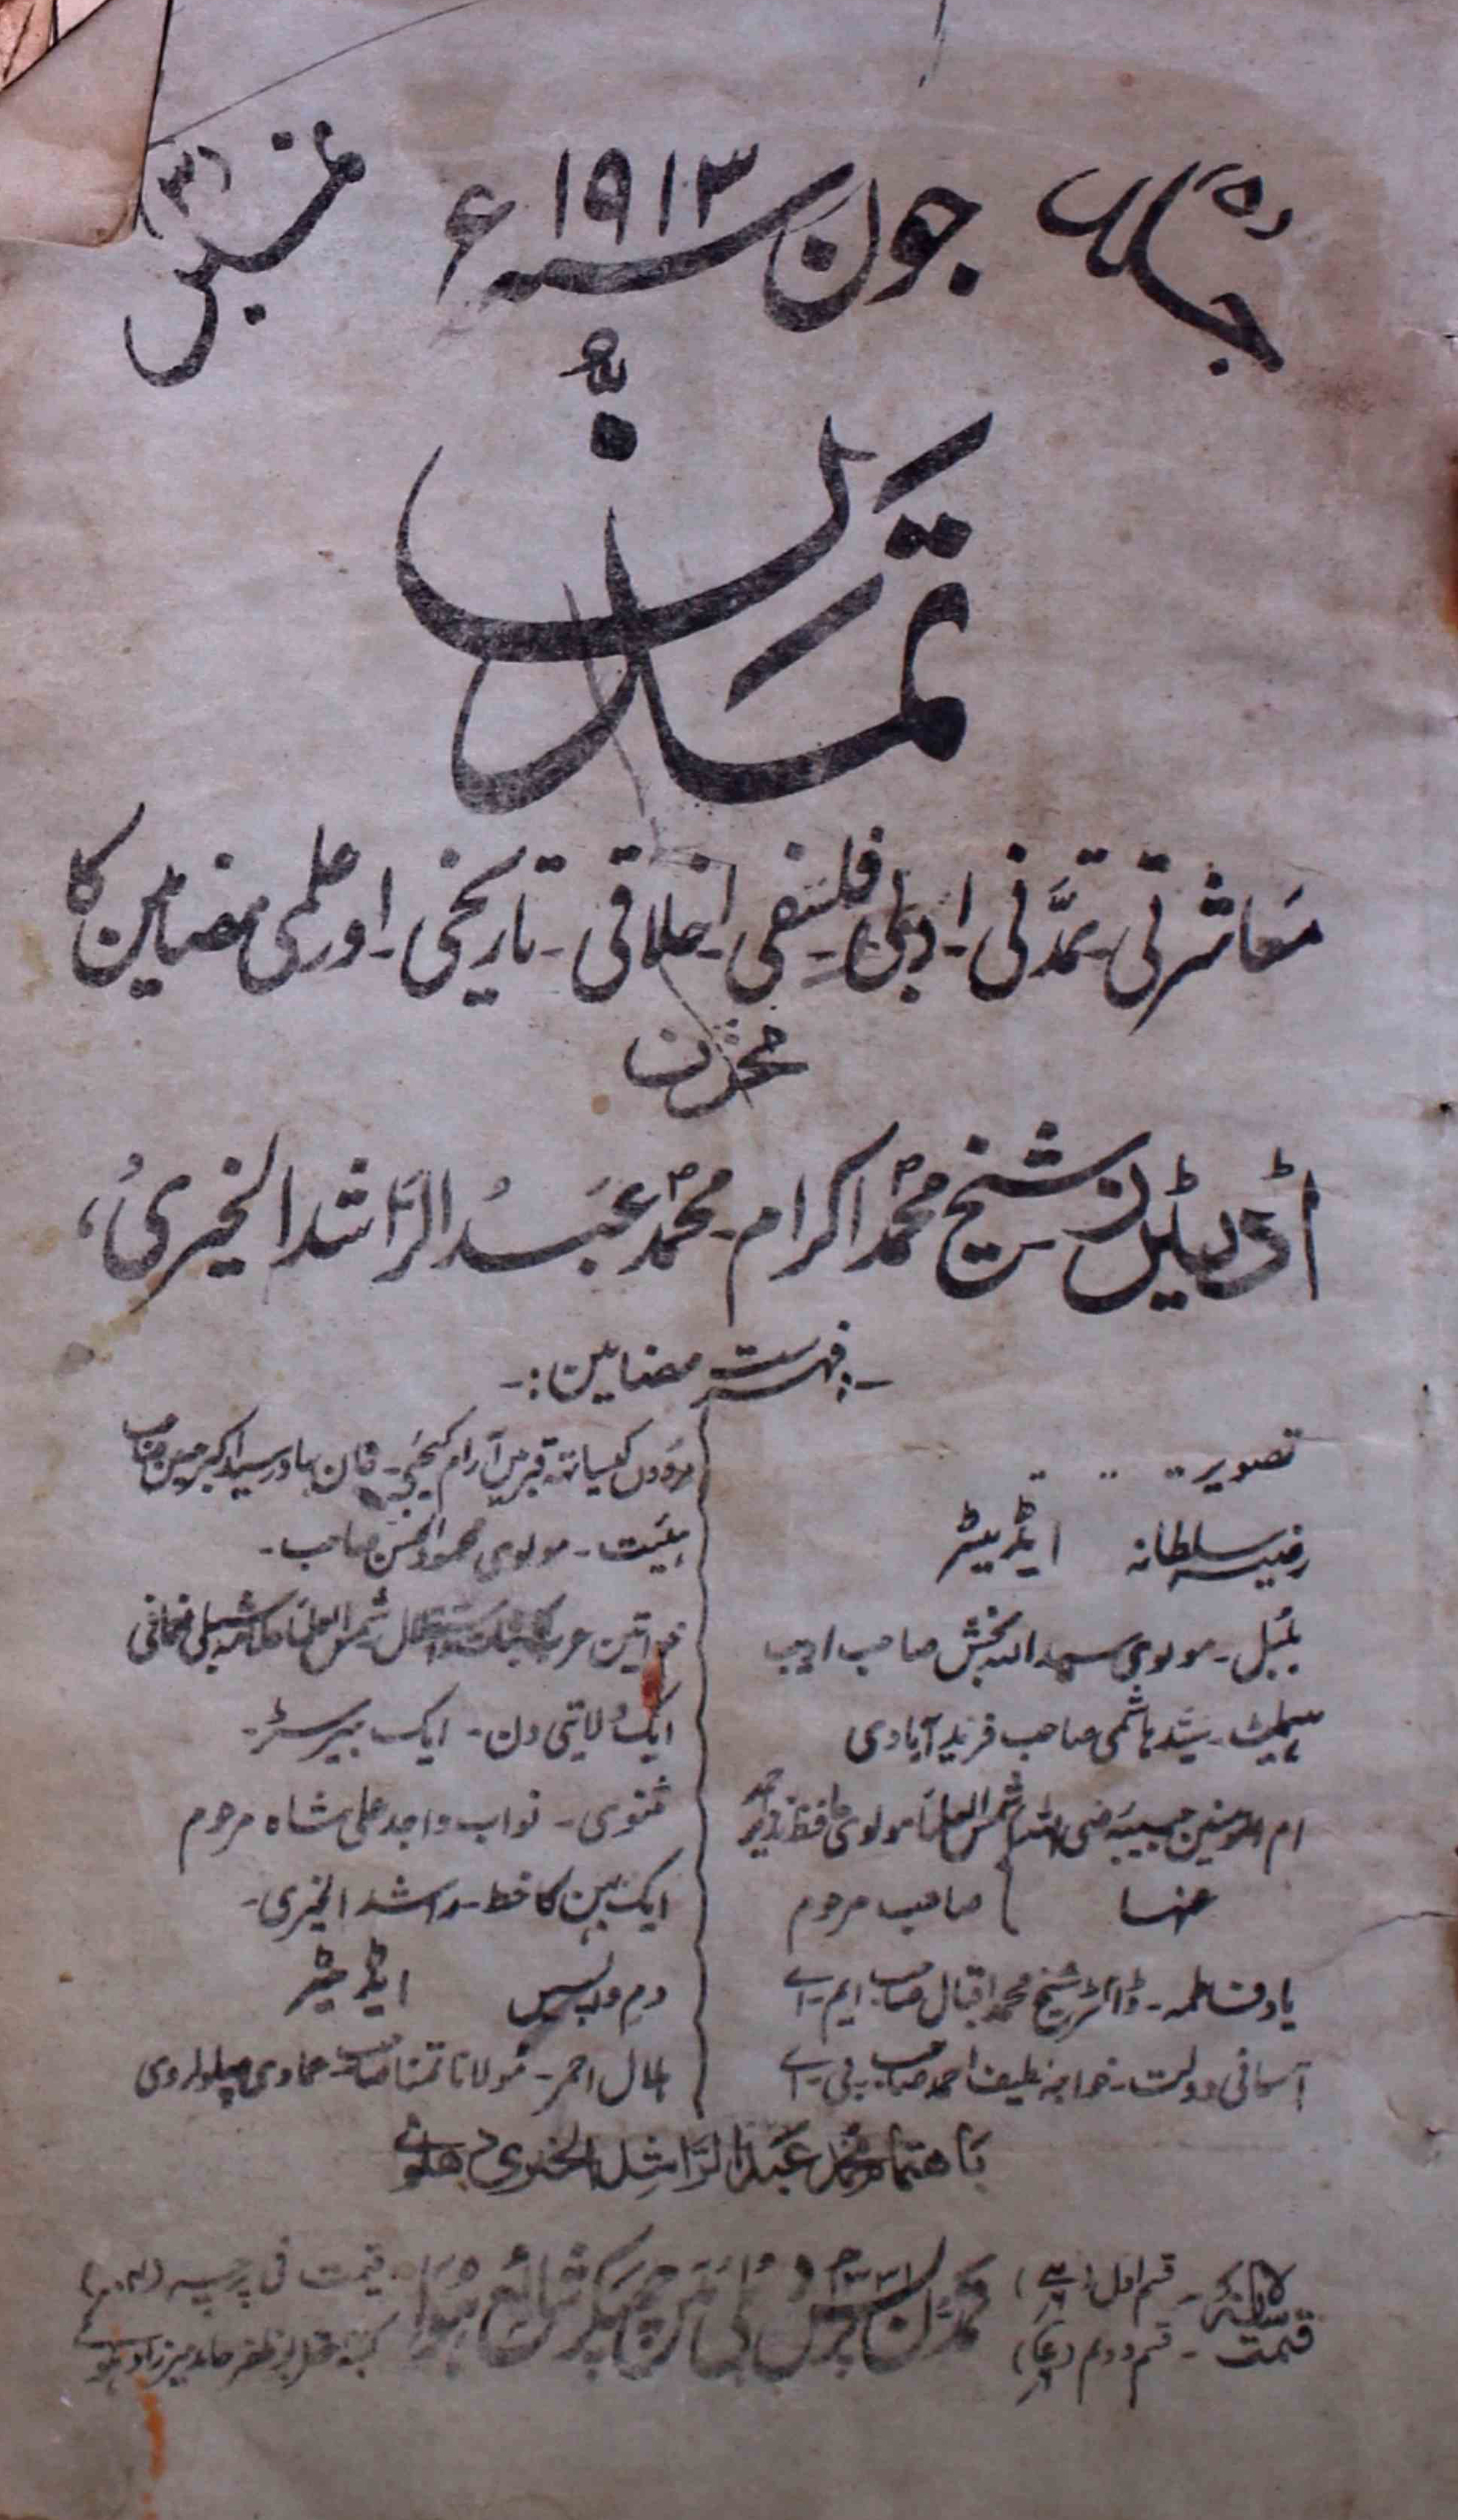 جلد (۵) جون سنہ ۱۹۱۳ء نمبر (۳)
تمدّن
معاشرتی ۔ تمدّنی ۔ ادبی ۔ فلسفی ۔ اخلاقی ۔ تاریخی ۔ اور علمی مضامین کا
مخزن
اڈیٹرز شیخ محمد اکرام ۔ محمد عبدُ الراشد الخیری،
فہرست مضامین
تصویر
رضیہ سلطانہ ایڈیٹر
بلبل ۔ مولوی سید اللہ بخش صاحب ادیب
ہیملٹ ۔ سید ہاشمی صاحب فرید آبادی
ام المومنین حبیبہ رضی اللہ شمس العلما مولوی حافظ نذیر احمد
عنہا صاحب مرحوم
یاد فاطمہ ۔ ڈاکٹر شیخ محمد اقبال صاحب ایم ۔ اے
آسمانی دولت ۔ خواجہ لطیف احمد صاحب بی ۔ اے
مردوں کیساتھ قبر میں آرام کیجئے ۔ خان بہادر سید اکبر حسین صاحب
ہیئت ۔ مولوی محمود الحسن صاحب ۔
خواتین عرب کا ثبات و استقلال شمس العلما علامہ شبلی نعمانی
ایک ولایتی دن ۔ ایک بیرسٹر ۔
مثنوی ۔ نواب واجد علی شاہ مرحوم
ایک بہن کا خط ۔ راشد الخیری ۔
دم واپسیں ایڈیٹر
ہلال احمر ۔ مولانا تمنا صاحب عمادی پھلواروی
باہتمام محمد عبد الراشد الخیری دہلوی
قیمت سالانہ ۔ قسم اول
قسم دوم
محمڈن پریس دہلی میں چھپکر شائع ہوا
قیمت فی پرچہ